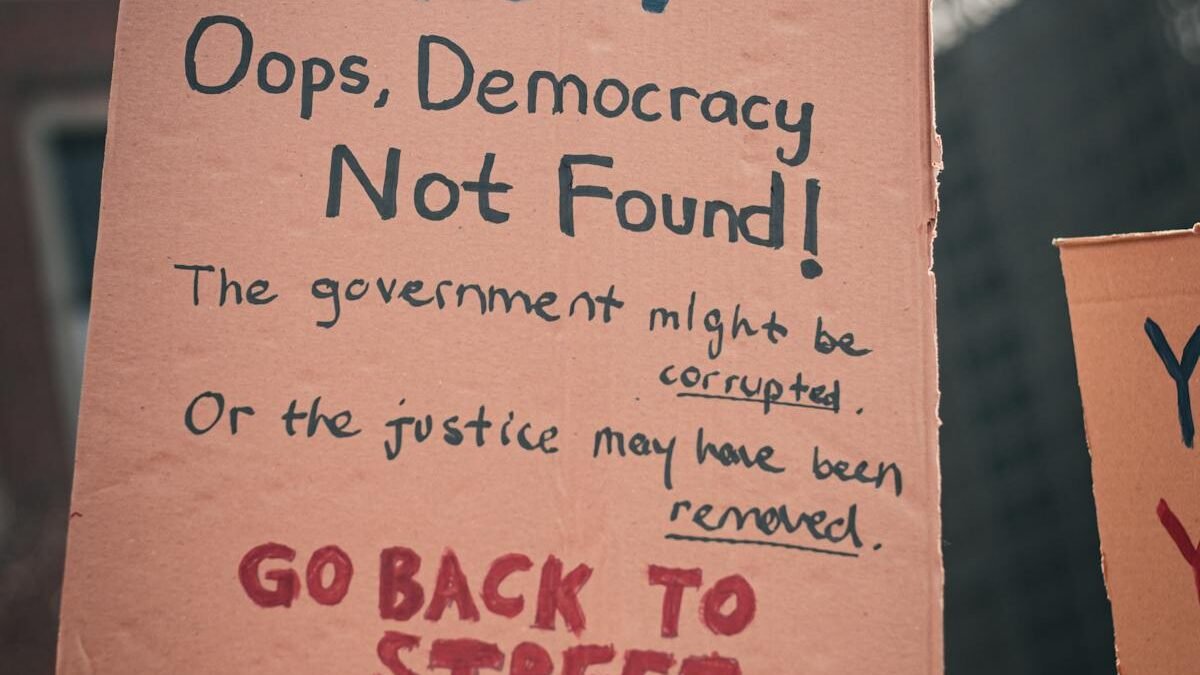 Oops, Democracy
Not Found!
The government might be
corrupted.
Or the justice may have been
removed.
GO BACK TO
STREET
Y
Y